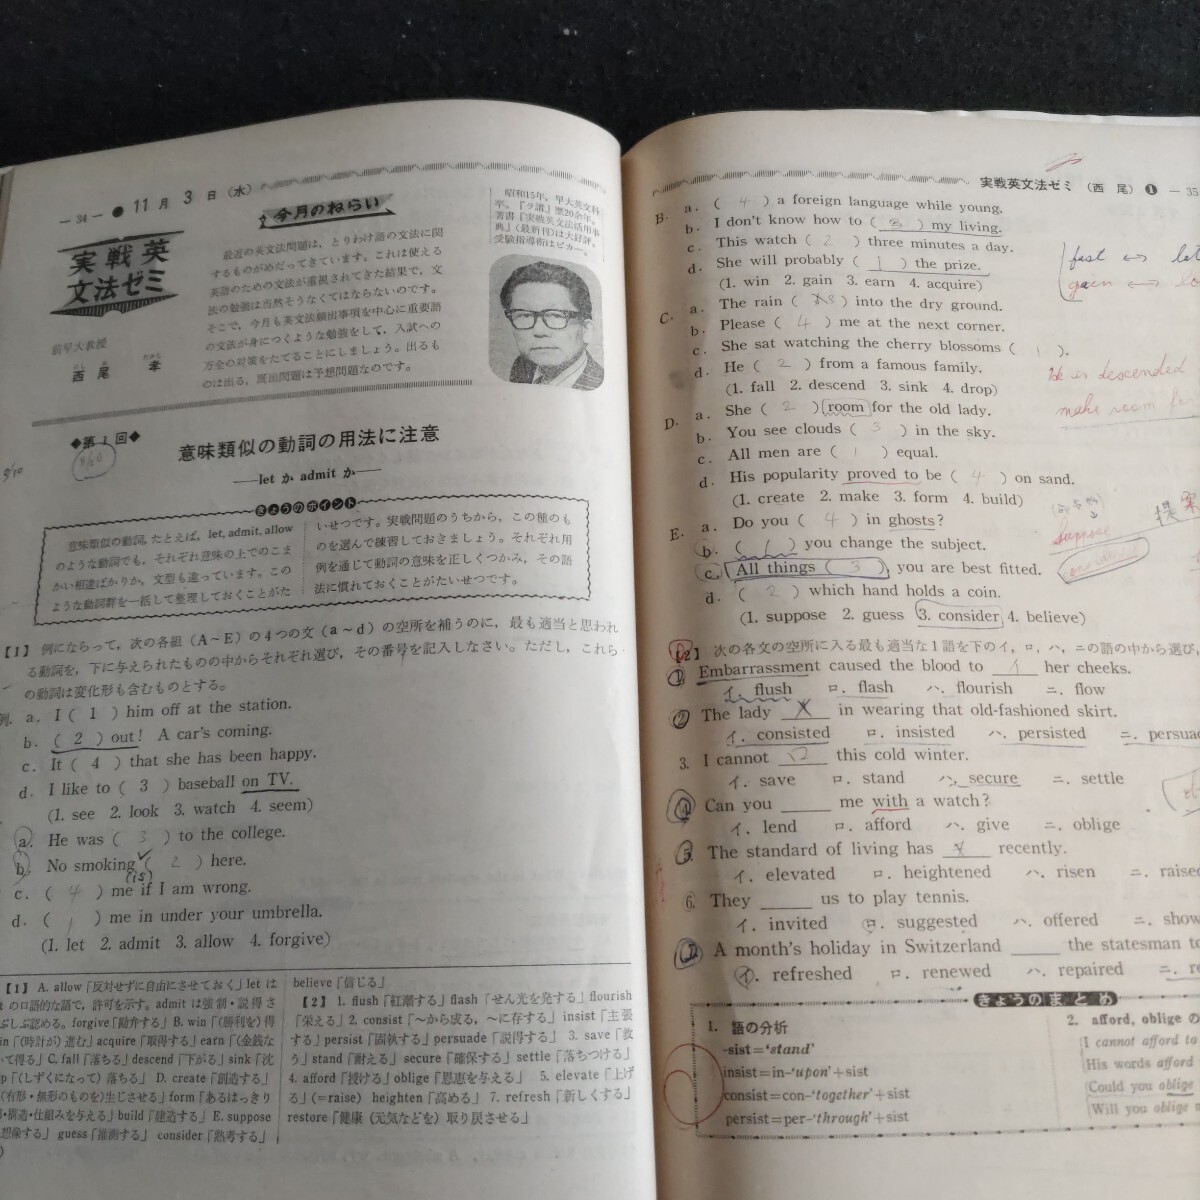 — 34 — ● 11月 3日(水)
今月のねらい
実戦英
文法ゼミ
前早大教授
西尾 孝
最近の英文法問題は、とりわけ語の文法に関
するものがめだってきています。これは使える
英語のための文法が重視されてきた結果で、文
法の勉強は当然そうなくてはならないのです。
そこで、今月も英文法頻出事項を中心に重要語
の文法が身につくような勉強をして、入試への
万全の対策をたてることにしましょう。出るも
のは出る、既出問題は予想問題なのです。
昭和15年、早大英文科
卒。『ラ講』歴20余年。
著書『実戦英文法活用事
典』(最新刊)は大好評。
受験指導術はピカ一。
◆第1回◆
意味類似の動詞の用法に注意
——let か admit か——
きょうのポイント
意味類似の動詞、たとえば, let, admit, allow
のような動詞でも、それぞれ意味の上でのこま
かい相違ばかりか、文型も違っています。この
ような動詞群を一括して整理しておくことがた
いせつです。実戦問題のうちから、この種のも
のを選んで練習しておきましょう。それぞれ用
例を通じて動詞の意味を正しくつかみ、その語
法に慣れておくことがたいせつです。
【1】 例にならって，次の各組（A～E）の4つの文（a～d）の空所を補うのに，最も適当と思われ
る動詞を，下に与えられたものの中からそれぞれ選び，その番号を記入しなさい。ただし，これら
の動詞は変化形も含むものとする。
例. a. I ( 1 ) him off at the station.
b. ( 2 ) out! A car's coming.
c. It ( 4 ) that she has been happy.
d. I like to ( 3 ) baseball on TV.
(1. see 2. look 3. watch 4. seem)
a. He was ( 3 ) to the college.
b. No smoking ( 2 ) here.
(is)
c. ( 4 ) me if I am wrong.
d. ( 1 ) me in under your umbrella.
(1. let 2. admit 3. allow 4. forgive)
【1】 A. allow「反対せずに自由にさせておく」let は
の口語的な語で，許可を示す。admit は強制・説得さ
ぶしぶ認める。forgive「勘弁する」B. win「(勝利を)得
in「(時計が)進む」acquire「取得する」earn「(金銭な
て得る」C. fall「落ちる」descend「下がる」sink「沈
p「(しずくになって)落ちる」 D. create「創造する」
(有形・無形のものを)生じさせる」form「あるはっきり
・構造・仕組みを与える」build「建造する」E. suppose
想像する」guess「推測する」consider「熟考する」
believe「信じる」
【2】 1. flush「紅潮する」flash「せん光を発する」flourish
「栄える」2. consist「～から成る，～に存する」insist「主張
する」persist「固執する」persuade「説得する」 3. save「救
う」stand「耐える」secure「確保する」settle「落ちつける」
4. afford「授ける」oblige「恩恵を与える」 5. elevate「上げ
る」(=raise) heighten「高める」7. refresh「新しくする」
restore「健康（元気などを）取り戻させる」
実戦英文法ゼミ（西 尾）❶ — 35
B. a. ( 4 ) a foreign language while young.
b. I don't know how to ( 3 ) my living.
c. This watch ( 2 ) three minutes a day.
d. She will probably ( 1 ) the prize.
(1. win 2. gain 3. earn 4. acquire)
C. a. The rain ( 3 ) into the dry ground.
b. Please ( 4 ) me at the next corner.
c. She sat watching the cherry blossoms ( 1 ).
d. He ( 2 ) from a famous family.
(1. fall 2. descend 3. sink 4. drop)
D. a. She ( 2 ) room for the old lady.
b. You see clouds ( 3 ) in the sky.
c. All men are ( 1 ) equal.
d. His popularity proved to be ( 4 ) on sand.
(1. create 2. make 3. form 4. build)
E. a. Do you ( 4 ) in ghosts?
b. ( 1 ) you change the subject.
c. All things ( 3 ) you are best fitted.
d. ( 2 ) which hand holds a coin.
(1. suppose 2. guess 3. consider 4. believe)
fast ↔
gain ↔
He is descended
make room for
Suppose
【2】 次の各文の空所に入る最も適当な1語を下のイ，ロ，ハ，ニの語の中から選び，
1. Embarrassment caused the blood to イ her cheeks.
イ. flush ロ. flash ハ. flourish ニ. flow
2. The lady ____ in wearing that old-fashioned skirt.
イ. consisted ロ. insisted ハ. persisted ニ. persuad
3. I cannot ロ this cold winter.
イ. save ロ. stand ハ. secure ニ. settle
4. Can you ____ me with a watch?
イ. lend ロ. afford ハ. give ニ. oblige
5. The standard of living has ____ recently.
イ. elevated ロ. heightened ハ. risen ニ. raised
6. They ____ us to play tennis.
イ. invited ロ. suggested ハ. offered ニ. show
7. A month's holiday in Switzerland ____ the statesman to
イ. refreshed ロ. renewed ハ. repaired ニ. re
きょうのまとめ
1. 語の分析
-sist=‘stand’
insist=in-‘upon’+sist
consist=con-‘together’+sist
persist=per-‘through’+sist
2. afford, oblige の
I cannot afford to
His words afford
Could you oblige
Will you oblige